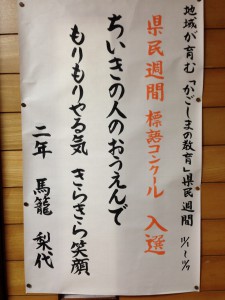 地域が育む「かごしまの教育」県民週間 11/1~11/7
県民週間 標語コンクール 入選
ちいきの人のおうえんで
もりもりやる気 きらきら笑顔
二年 馬籠 梨代